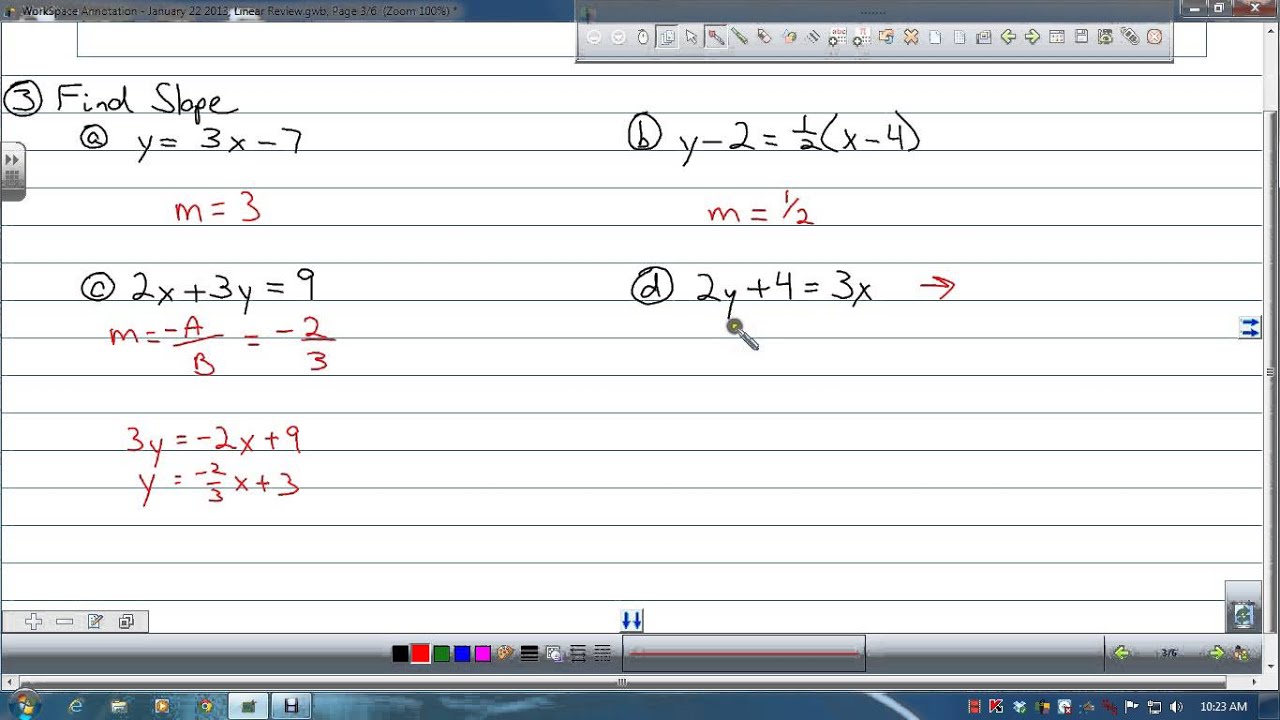 WorkSpace Annotation - January 22 2013, Linear Review.gwb, Page 3/6 (Zoom 100%) *
③ Find Slope
ⓐ y = 3x - 7
m = 3
ⓑ y - 2 = 1/2 (x - 4)
m = 1/2
ⓒ 2x + 3y = 9
m = -A/B = -2/3
3y = -2x + 9
y = -2/3 x + 3
ⓓ 2y + 4 = 3x →
3/6
10:23 AM